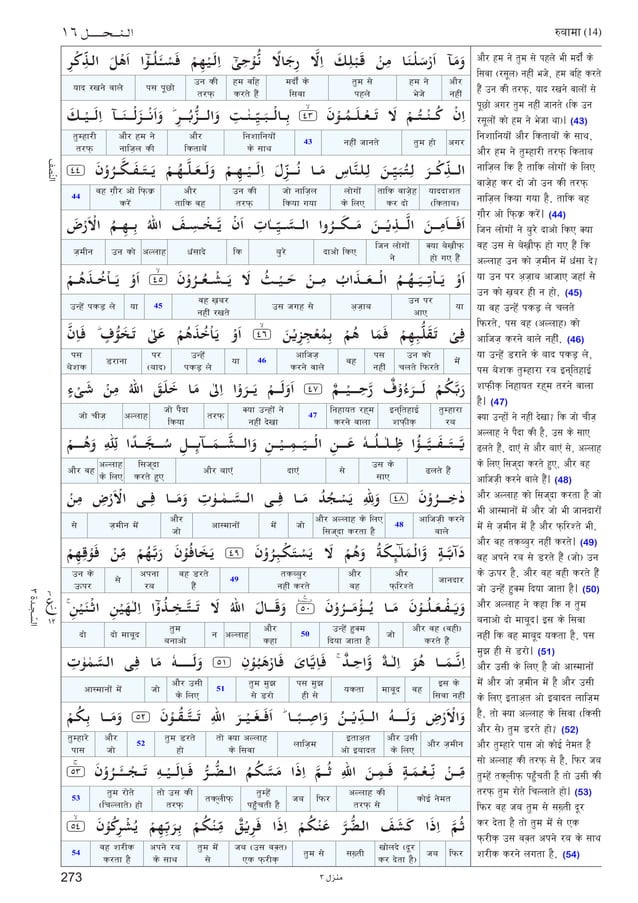 النحل ١٦
रुबामा (14)
وَمَآ اَرْسَلْنَا مِنْ قَبْلِكَ اِلَّا رِجَالًا نُّوْحِيْٓ اِلَيْهِمْ فَسْـَٔلُوْٓا اَهْلَ الذِّكْرِ
याद रखने वाले पस पूछो उन की तरफ़ हम वहि करते हैं मर्दों के सिवा तुम से पहले हम ने भेजे और नहीं
اِنْ كُنْتُمْ لَا تَعْلَمُوْنَ ٤٣ بِالْبَيِّنٰتِ وَالزُّبُرِ وَاَنْزَلْنَآ اِلَيْكَ
तुम्हारी तरफ़ और हम ने नाज़िल की और किताबें निशानियों के साथ 43 नहीं जानते तुम हो अगर
الذِّكْرَ لِتُبَيِّنَ لِلنَّاسِ مَا نُزِّلَ اِلَيْهِمْ وَلَعَلَّهُمْ يَتَفَكَّرُوْنَ ٤٤
44 वह ग़ौर ओ फ़िक्र करें और ताकि वह उन की तरफ़ जो नाज़िल किया गया लोगों के लिए ताकि वाज़ेह कर दो याददाशत (किताब)
اَفَاَمِنَ الَّذِيْنَ مَكَرُوا السَّيِّاٰتِ اَنْ يَّخْسِفَ اللّٰهُ بِهِمُ الْاَرْضَ
ज़मीन उन को अल्लाह धंसादे कि बुरे दाओ किए जिन लोगों ने क्या बेख़ौफ़ हो गए हैं
اَوْ يَاْتِيَهُمُ الْعَذَابُ مِنْ حَيْثُ لَا يَشْعُرُوْنَ ٤٥ اَوْ يَاْخُذَهُمْ
उन्हें पकड़ ले या 45 वह ख़बर नहीं रखते उस जगह से अज़ाब उन पर आए या
فِيْ تَقَلُّبِهِمْ فَمَا هُمْ بِمُعْجِزِيْنَ ٤٦ اَوْ يَاْخُذَهُمْ عَلٰى تَخَوُّفٍ فَاِنَّ
पस बेशक डराना पर (बाद) उन्हें पकड़ ले या 46 आजिज़ करने वाले वह पस नहीं उन को चलते फिरते में
رَبَّكُمْ لَرَءُوْفٌ رَّحِيْمٌ ٤٧ اَوَلَمْ يَرَوْا اِلٰى مَا خَلَقَ اللّٰهُ مِنْ شَيْءٍ
जो चीज़ अल्लाह जो पैदा किया तरफ़ क्या उन्हों ने नहीं देखा 47 निहायत रहम करने वाला इन्तिहाई शफ़ीक़ तुम्हारा रब
يَّتَفَيَّؤُا ظِلٰلُهٗ عَنِ الْيَمِيْنِ وَالشَّمَآئِلِ سُجَّدًا لِّلّٰهِ وَهُمْ
और वह अल्लाह के लिए सिज्दा करते हुए और बाएं दाएं से उस के साए ढलते हैं
دٰخِرُوْنَ ٤٨ وَلِلّٰهِ يَسْجُدُ مَا فِي السَّمٰوٰتِ وَمَا فِي الْاَرْضِ مِنْ
से ज़मीन में और जो आस्मानों में जो और अल्लाह के लिए सिज्दा करता है 48 आजिज़ी करने वाले
دَآبَّةٍ وَّالْمَلٰٓئِكَةُ وَهُمْ لَا يَسْتَكْبِرُوْنَ ٤٩ يَخَافُوْنَ رَبَّهُمْ مِّنْ فَوْقِهِمْ
उन के ऊपर से अपना रब वह डरते हैं 49 तकब्बुर नहीं करते और वह और फ़रिश्ते जानदार
وَيَفْعَلُوْنَ مَا يُؤْمَرُوْنَ ٥٠ وَقَالَ اللّٰهُ لَا تَتَّخِذُوْٓا اِلٰهَيْنِ اثْنَيْنِ
दो दो माबूद तुम बनाओ न अल्लाह और कहा 50 उन्हें हुक्म दिया जाता है जो और वह (वही) करते हैं
اِنَّمَا هُوَ اِلٰهٌ وَّاحِدٌ فَاِيَّايَ فَارْهَبُوْنِ ٥١ وَلَهٗ مَا فِي السَّمٰوٰتِ
आस्मानों में जो और उसी के लिए 51 तुम मुझ से डरो पस मुझ ही से यकता माबूद वह इस के सिवा नहीं
وَالْاَرْضِ وَلَهُ الدِّيْنُ وَاصِبًا اَفَغَيْرَ اللّٰهِ تَتَّقُوْنَ ٥٢ وَمَا بِكُمْ
तुम्हारे पास और जो 52 तुम डरते हो तो क्या अल्लाह के सिवा लाज़िम इताअत ओ इबादत और उसी के लिए और ज़मीन
مِّنْ نِّعْمَةٍ فَمِنَ اللّٰهِ ثُمَّ اِذَا مَسَّكُمُ الضُّرُّ فَاِلَيْهِ تَجْـَٔرُوْنَ ٥٣
53 तुम रोते (चिल्लाते) हो तो उस की तरफ़ तक्लीफ़ तुम्हें पहुँचती है जब फिर अल्लाह की तरफ़ से कोई नेमत
ثُمَّ اِذَا كَشَفَ الضُّرَّ عَنْكُمْ اِذَا فَرِيْقٌ مِّنْكُمْ بِرَبِّهِمْ يُشْرِكُوْنَ ٥٤
54 वह शरीक करता है अपने रब के साथ तुम में से जब (उस वक़्त) एक फ़रीक़ तुम से सख़्ती खोलदे (दूर कर देता है) जब फिर
और हम ने तुम से पहले भी मर्दों के
सिवा (रसूल) नहीं भेजे, हम वहि करते
हैं उन की तरफ़, याद रखने वालों से
पूछो अगर तुम नहीं जानते (कि उन
रसूलों को हम ने भेजा था)। (43)
निशानियों और किताबों के साथ,
और हम ने तुम्हारी तरफ़ किताब
नाज़िल किया है ताकि लोगों के लिए
वाज़ेह कर दो जो उन की तरफ़
नाज़िल किया गया है, ताकि वह
ग़ौर ओ फ़िक्र करें। (44)
जिन लोगों ने बुरे दाओ किए क्या
वह उस से बेख़ौफ़ हो गए हैं कि
अल्लाह उन को ज़मीन में धंसा दे।
या उन पर अज़ाब आजाए जहां से
उन को ख़बर ही न हो, (45)
या वह उन्हें पकड़ ले चलते
फिरते, पस वह (अल्लाह) को
आजिज़ करने वाले नहीं, (46)
या उन्हें डराने के बाद पकड़ ले,
पस बेशक तुम्हारा रब इन्तिहाई
शफ़ीक़ निहायत रहम करने वाला
है। (47)
क्या उन्हों ने नहीं देखा? कि जो चीज़
अल्लाह ने पैदा की है, उस के साए
ढलते हैं, दाएं से और बाएं से, अल्लाह
के लिए सिज्दा करते हुए, और वह
आजिज़ी करने वाले हैं। (48)
और अल्लाह को सिज्दा करता है जो
भी आस्मानों में और जो भी जानदारों
में से ज़मीन में है और फ़रिश्ते भी,
और वह तकब्बुर नहीं करते। (49)
वह अपने रब से डरते हैं (जो) उन
के ऊपर है, और वह वही करते हैं
जो उन्हें हुक्म दिया जाता है। (50)
और अल्लाह ने कहा कि न तुम
बनाओ दो माबूद। इस के सिवा
नहीं कि वह माबूद यकता है, पस
मुझ ही से डरो। (51)
और उसी के लिए है जो आस्मानों
में और जो ज़मीन में है और उसी
के लिए इताअत ओ इबादत लाज़िम
है, तो क्या अल्लाह के सिवा (किसी
और से) तुम डरते हो? (52)
और तुम्हारे पास जो कोई नेमत है
सो अल्लाह की तरफ़ से है, फिर जब
तुम्हें तक्लीफ़ पहुँचती है तो उसी की
तरफ़ तुम रोते चिल्लाते हो। (53)
फिर जब वह तुम से सख़्ती दूर
कर देता है तो तुम में से एक
फ़रीक़ उस वक़्त अपने रब के साथ
शरीक करने लगता है, (54)
النصف
ع
١٢
السجدة ٣
273
منزل ٣